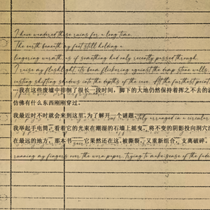 I have wandered these ruins for a long time.
The earth beneath my feet still holding a
lingering warmth as if something had only recently passed through
I raise my flashlight, its beam flickering against the damp stone walls,
casting shifting shadows into the depths of the cave. At the farthest point
一我在这些废墟中徘徊了很长一段时间，脚下的大地仍然保持着挥之不去的
仿佛有什么东西刚刚穿过。
我最近时不时就会来到这里，为了解开一个谜题。
我举起手电筒，看着它的光束在潮湿的石墙上摇曳，将不变的阴影投向洞穴
在最远的地方，那本书——它果然还在这，被撕裂，又重新组合，支离破碎，
running my fingers over the worn paper, trying to make sense of the